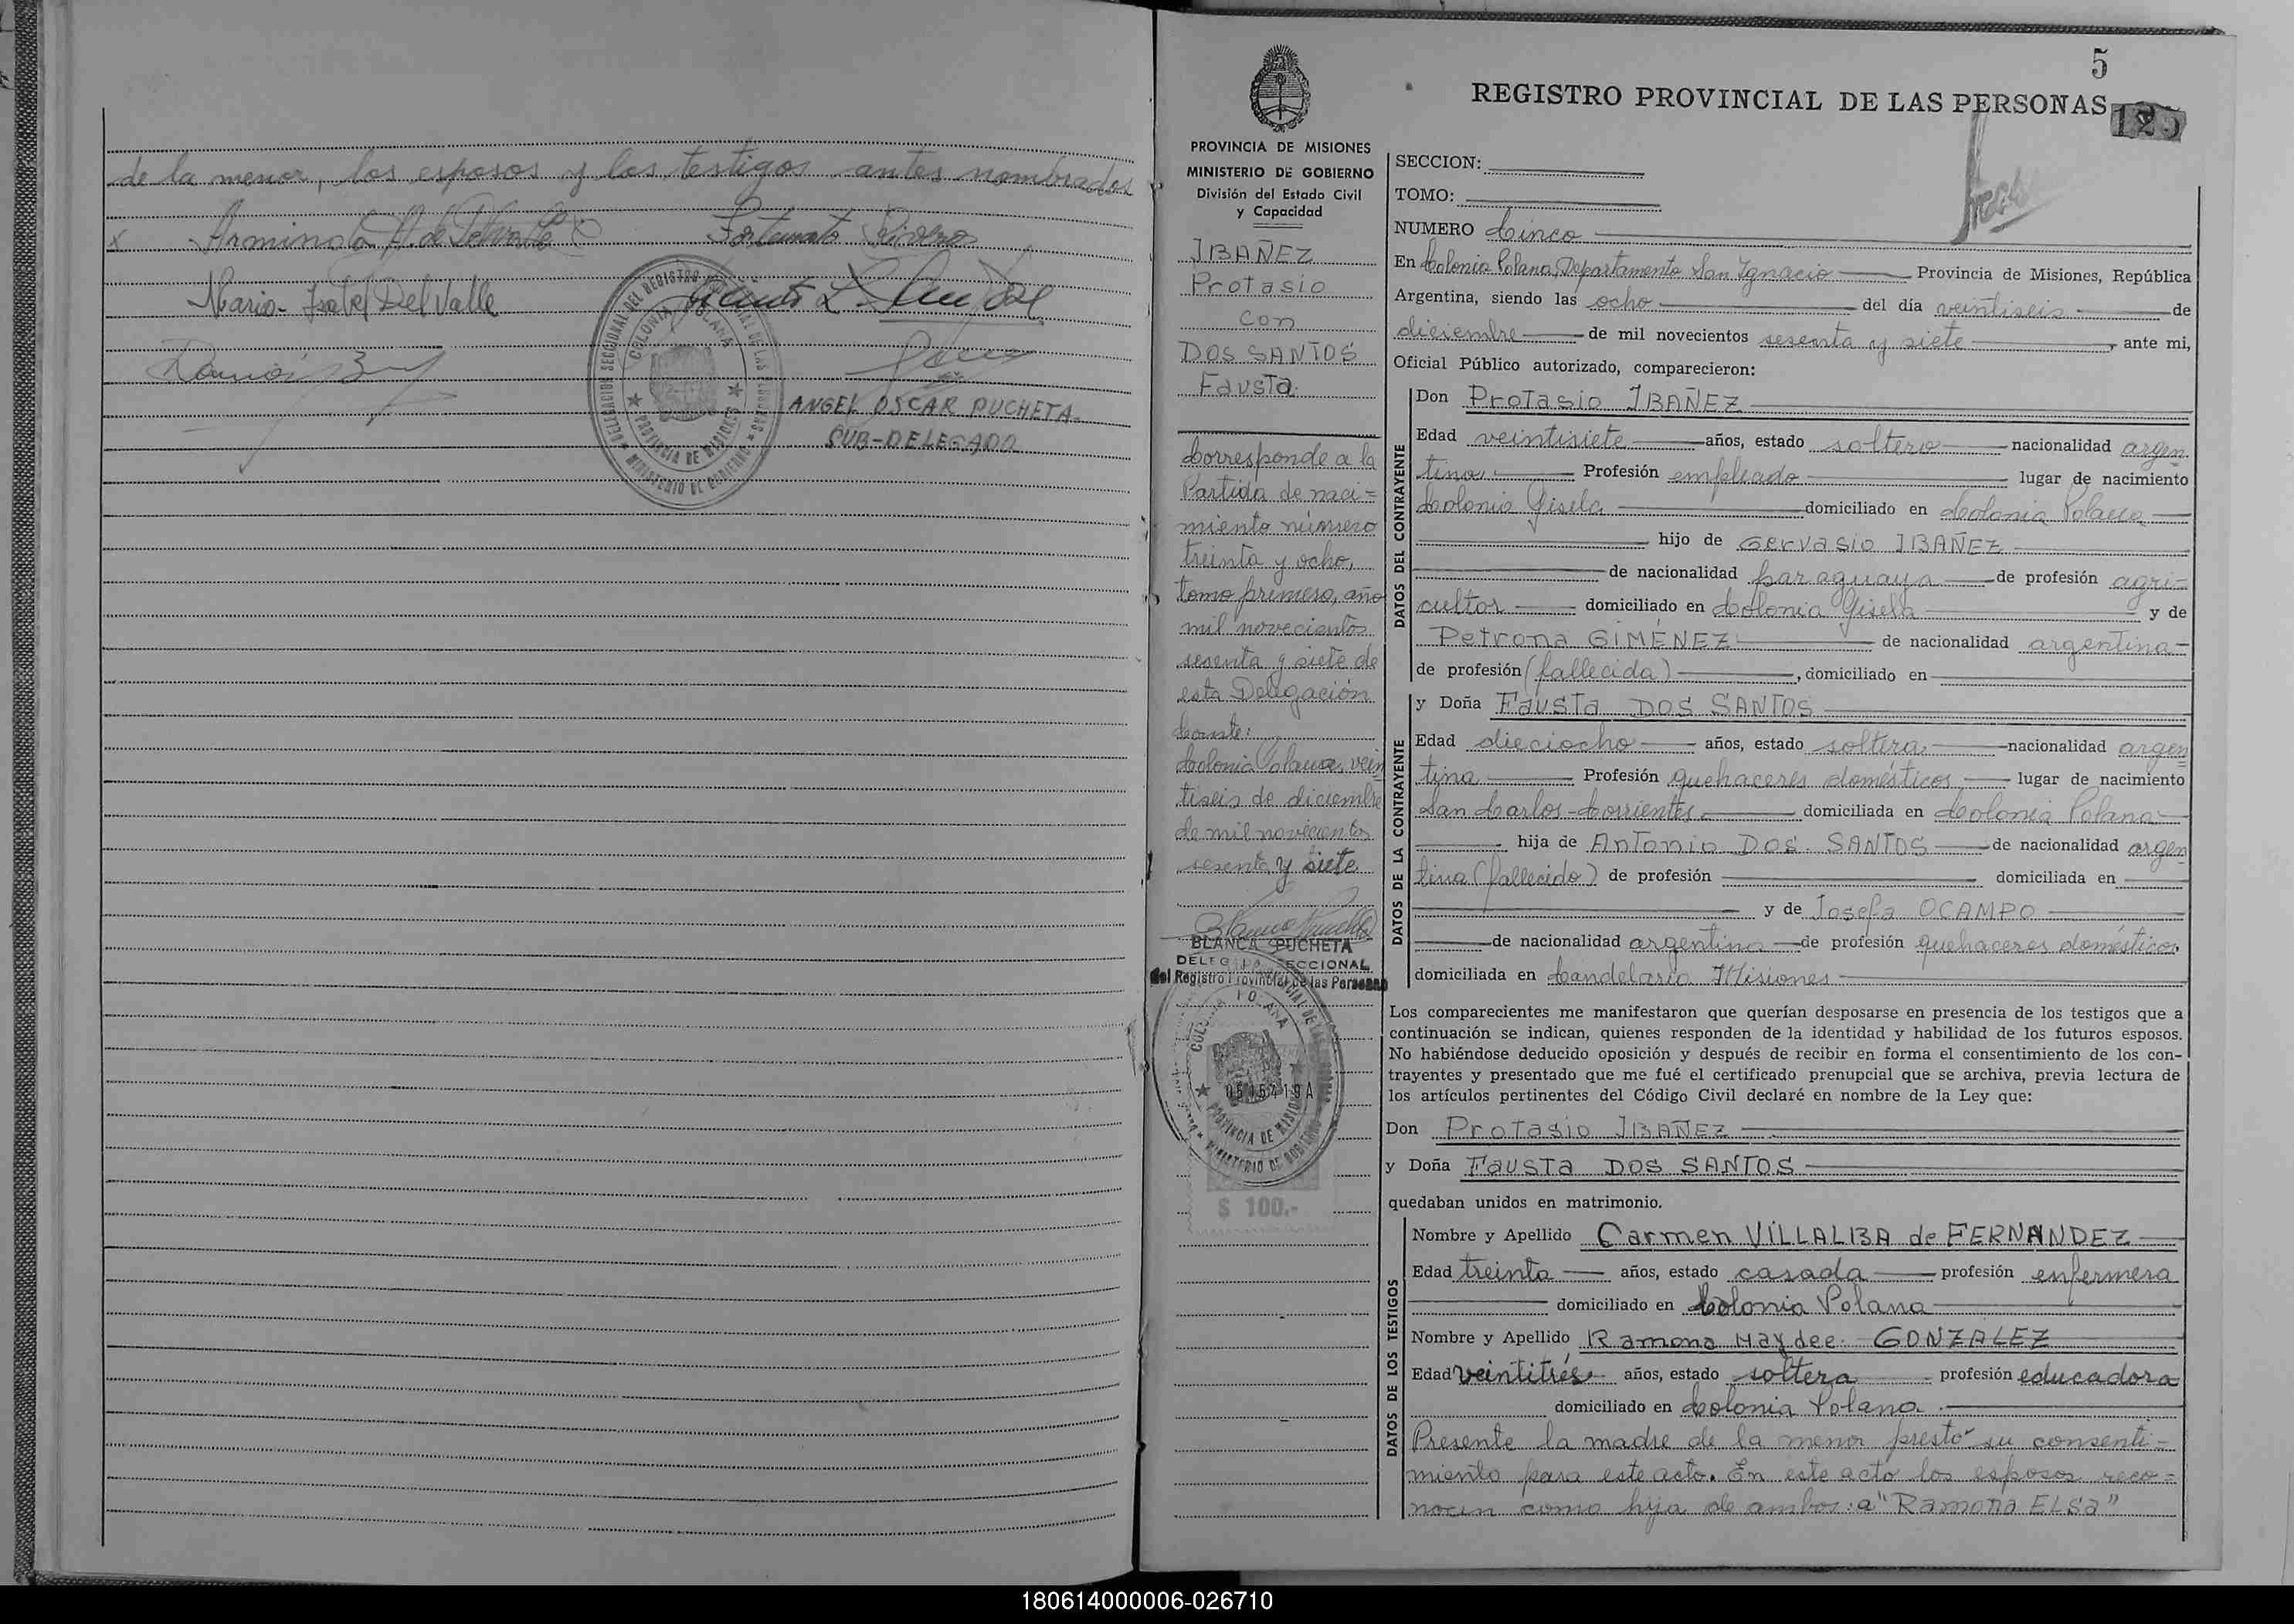 de la menor, los esposos y los testigos antes nombrados
x Arminda A. de Delvalle
Fortunato Rivero
Maria Isabel Del Valle
Ramón
DELEGACION SECCIONAL DEL REGISTRO PROVINCIAL DE LAS PERSONAS
COLONIA POLANA
PROVINCIA DE MISIONES
MINISTERIO DE GOBIERNO
ANGEL OSCAR PUCHETA
SUB-DELEGADO
5
REGISTRO PROVINCIAL DE LAS PERSONAS
125
PROVINCIA DE MISIONES
MINISTERIO DE GOBIERNO
División del Estado Civil
y Capacidad
IBAÑEZ
Protasio
con
DOS SANTOS
Fausta
Corresponde a la
Partida de naci=
miento número
treinta y ocho,
tomo primero, año
mil novecientos
sesenta y siete de
esta Delegación
Conste:
Colonia Polana, vein
tiseis de diciembre
de mil novecientos
sesenta y siete
BLANCA PUCHETA
DELEGADA SECCIONAL
del Registro Provincial de las Personas
COLONIA POLANA
0515419A
PROVINCIA DE MISIONES
MINISTERIO DE GOBIERNO
$ 100.-
SECCION:
TOMO:
NUMERO Cinco
En Colonia Polana, Departamento San Ignacio Provincia de Misiones, República
Argentina, siendo las ocho del día veintiseis de
diciembre de mil novecientos sesenta y siete, ante mi,
Oficial Público autorizado, comparecieron:
DATOS DEL CONTRAYENTE
Don Protasio IBAÑEZ
Edad veintisiete años, estado soltero nacionalidad argen
tina Profesión empleado lugar de nacimiento
Colonia Gisela domiciliado en Colonia Polana
hijo de Gervasio IBAÑEZ
de nacionalidad paraguaya de profesión agri=
cultor domiciliado en Colonia Gisela y de
Petrona GIMÉNEZ de nacionalidad argentina
de profesión (fallecida), domiciliado en
DATOS DE LA CONTRAYENTE
y Doña Fausta DOS SANTOS
Edad dieciocho años, estado soltera nacionalidad argen
tina Profesión quehaceres domésticos lugar de nacimiento
San Carlos-Corrientes domiciliada en Colonia Polana
hija de Antonio DOS SANTOS de nacionalidad argen
tina (fallecido) de profesión domiciliada en
y de Josefa OCAMPO
de nacionalidad argentina de profesión quehaceres domésticos
domiciliada en Candelaria Misiones
Los comparecientes me manifestaron que querían desposarse en presencia de los testigos que a
continuación se indican, quienes responden de la identidad y habilidad de los futuros esposos.
No habiéndose deducido oposición y después de recibir en forma el consentimiento de los con-
trayentes y presentado que me fué el certificado prenupcial que se archiva, previa lectura de
los artículos pertinentes del Código Civil declaré en nombre de la Ley que:
Don Protasio IBAÑEZ
y Doña Fausta DOS SANTOS
quedaban unidos en matrimonio.
DATOS DE LOS TESTIGOS
Nombre y Apellido Carmen VILLALBA de FERNANDEZ
Edad treinta años, estado casada profesión enfermera
domiciliado en Colonia Polana
Nombre y Apellido Ramona Haydee GONZALEZ
Edad veintitrés años, estado soltera profesión educadora
domiciliado en Colonia Polana
Presente la madre de la menor prestó su consenti-
miento para este acto. En este acto los esposos reco=
nocen como hija de ambos: a "Ramona ELSa"
180614000006-026710